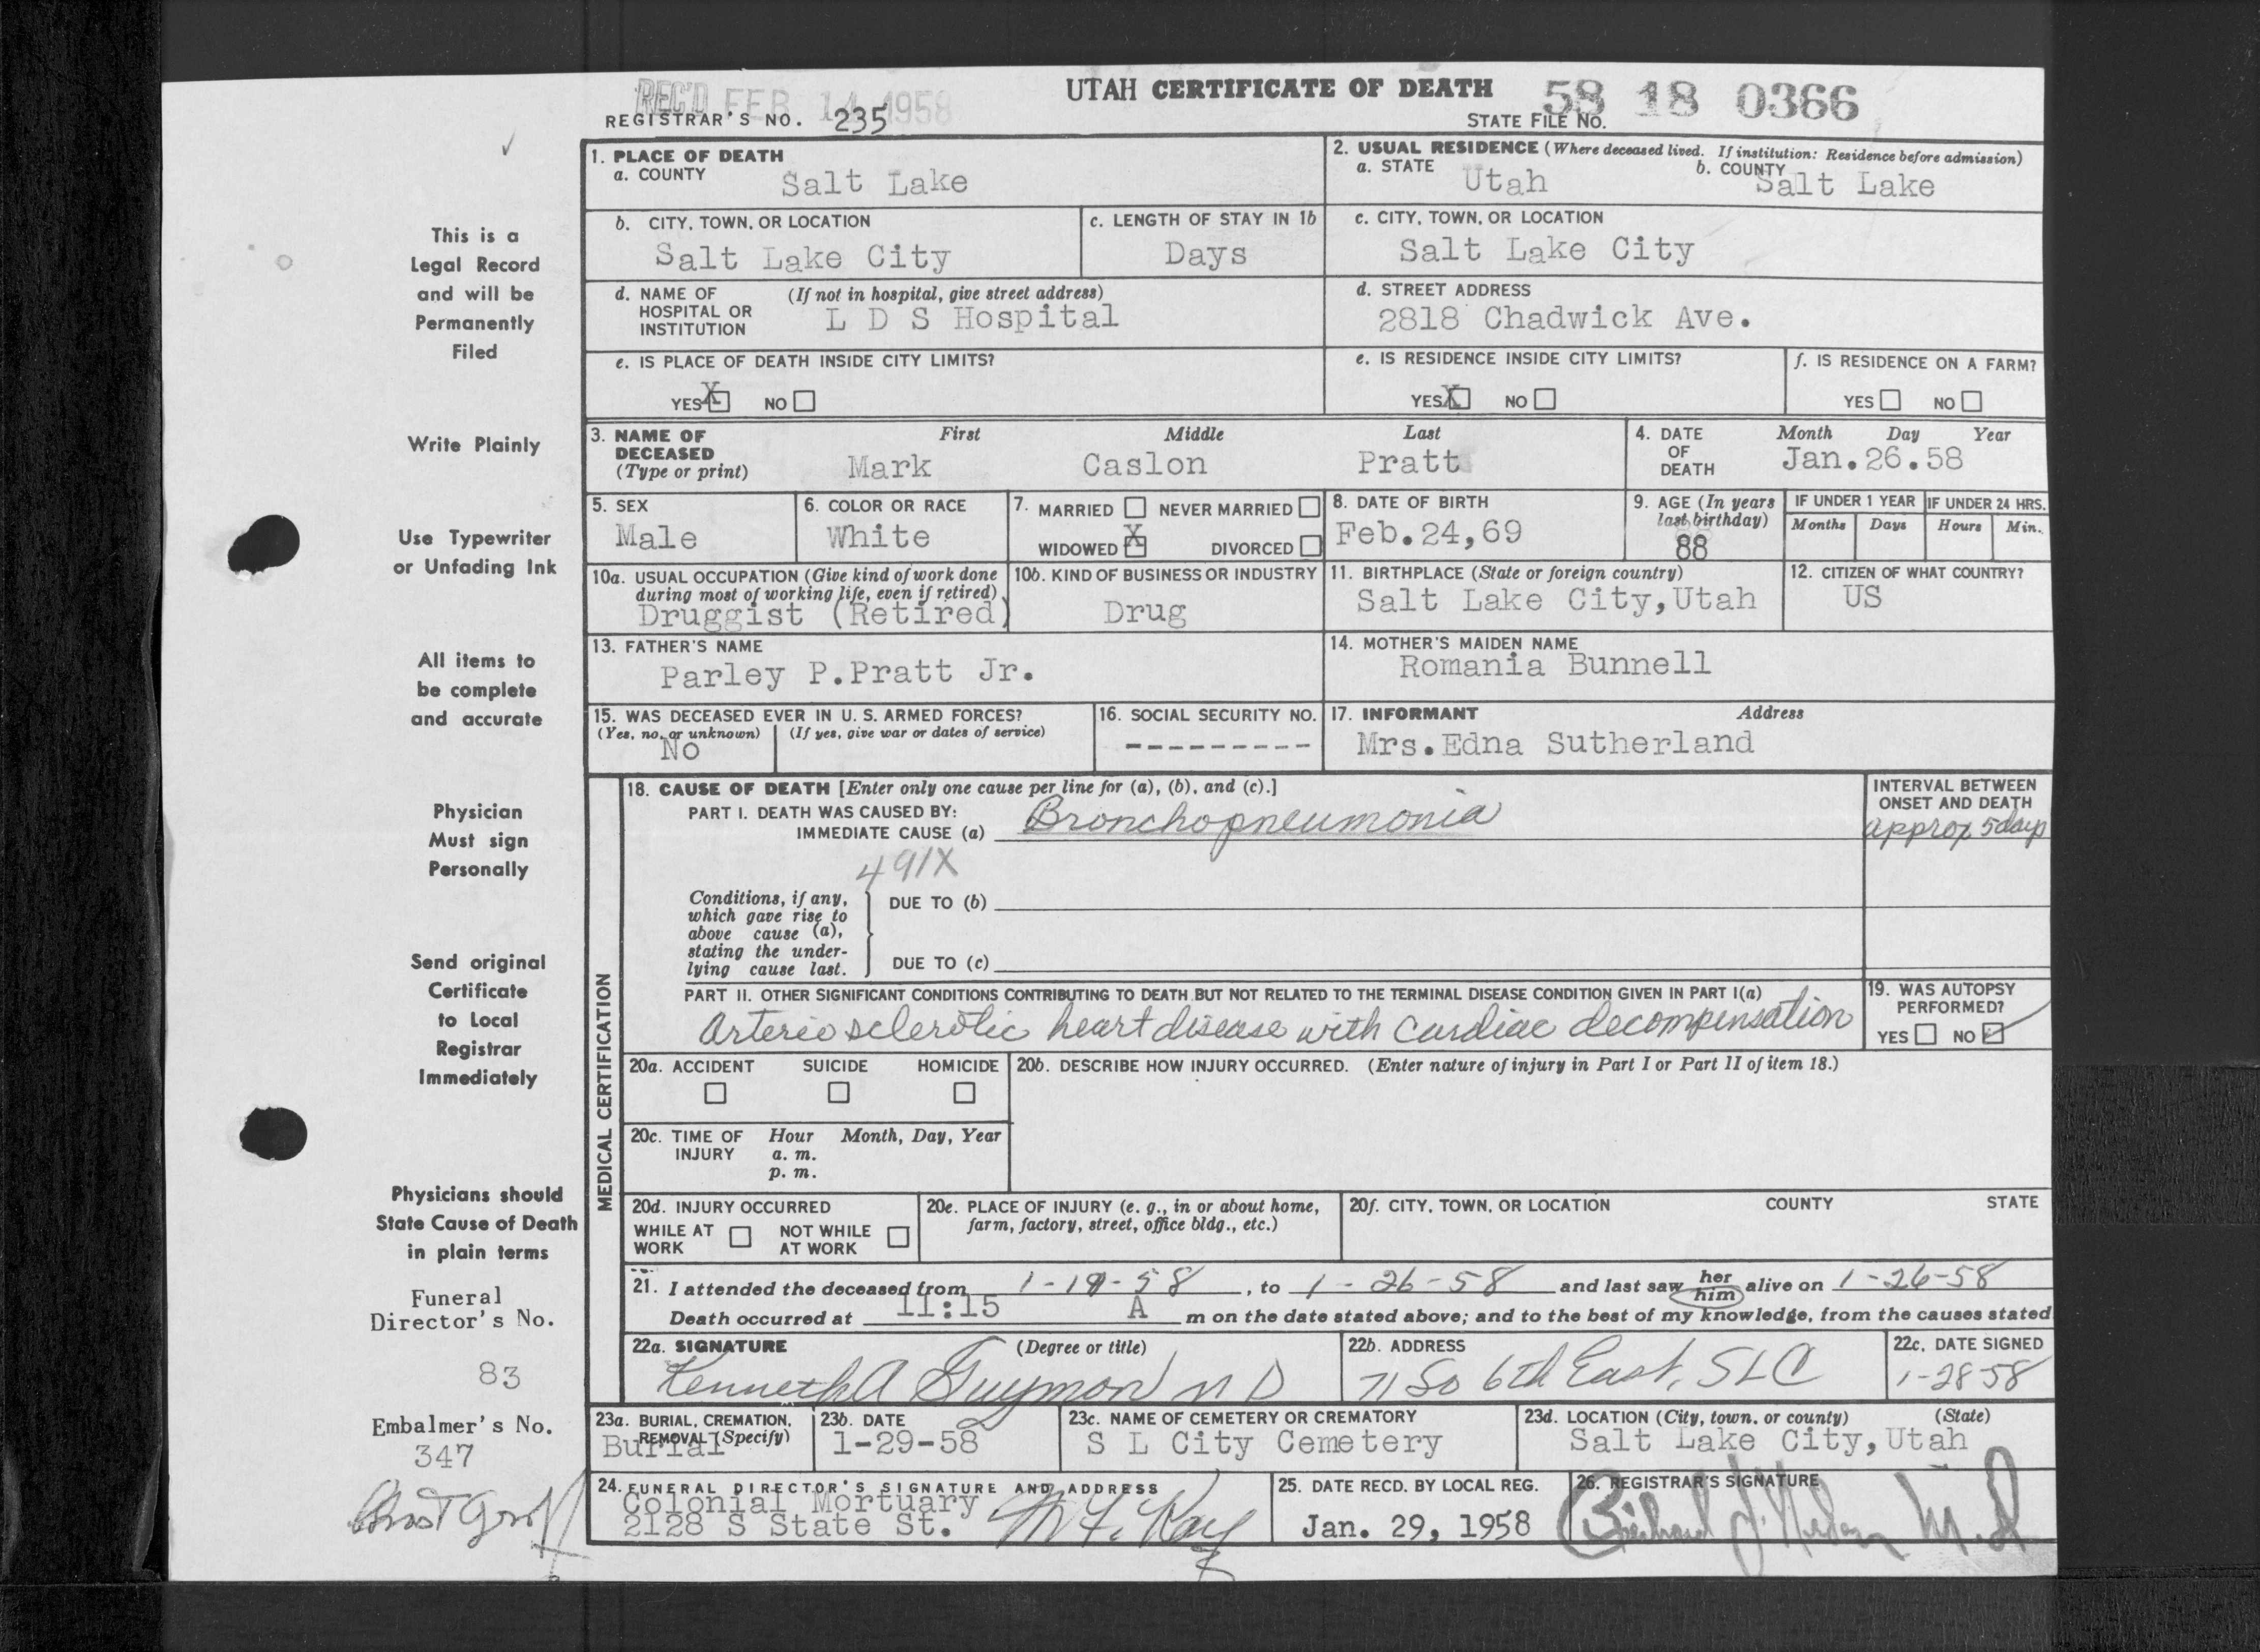 REC'D FEB 14 1958
UTAH CERTIFICATE OF DEATH
58 18 0366
REGISTRAR'S NO. 235
STATE FILE NO.
1. PLACE OF DEATH
a. COUNTY Salt Lake
2. USUAL RESIDENCE (Where deceased lived. If institution: Residence before admission)
a. STATE Utah b. COUNTY Salt Lake
b. CITY, TOWN, OR LOCATION
Salt Lake City
c. LENGTH OF STAY IN 1b
Days
c. CITY, TOWN, OR LOCATION
Salt Lake City
d. NAME OF HOSPITAL OR INSTITUTION (If not in hospital, give street address)
L D S Hospital
d. STREET ADDRESS
2818 Chadwick Ave.
e. IS PLACE OF DEATH INSIDE CITY LIMITS?
YES X NO
e. IS RESIDENCE INSIDE CITY LIMITS?
YES X NO
f. IS RESIDENCE ON A FARM?
YES NO
3. NAME OF DECEASED (Type or print)
First Middle Last
Mark Caslon Pratt
4. DATE OF DEATH
Month Day Year
Jan.26.58
5. SEX
Male
6. COLOR OR RACE
White
7. MARRIED NEVER MARRIED
WIDOWED X DIVORCED
8. DATE OF BIRTH
Feb.24,69
9. AGE (In years last birthday)
88
IF UNDER 1 YEAR
Months Days
IF UNDER 24 HRS.
Hours Min.
10a. USUAL OCCUPATION (Give kind of work done during most of working life, even if retired)
Druggist (Retired)
10b. KIND OF BUSINESS OR INDUSTRY
Drug
11. BIRTHPLACE (State or foreign country)
Salt Lake City, Utah
12. CITIZEN OF WHAT COUNTRY?
US
13. FATHER'S NAME
Parley P.Pratt Jr.
14. MOTHER'S MAIDEN NAME
Romania Bunnell
15. WAS DECEASED EVER IN U. S. ARMED FORCES?
(Yes, no, or unknown) (If yes, give war or dates of service)
No
16. SOCIAL SECURITY NO.
---------
17. INFORMANT Address
Mrs.Edna Sutherland
MEDICAL CERTIFICATION
18. CAUSE OF DEATH [Enter only one cause per line for (a), (b), and (c).]
PART I. DEATH WAS CAUSED BY:
IMMEDIATE CAUSE (a) Bronchopneumonia
INTERVAL BETWEEN ONSET AND DEATH
approx 5 days
491X
Conditions, if any, which gave rise to above cause (a), stating the underlying cause last.
DUE TO (b)
DUE TO (c)
PART II. OTHER SIGNIFICANT CONDITIONS CONTRIBUTING TO DEATH BUT NOT RELATED TO THE TERMINAL DISEASE CONDITION GIVEN IN PART I(a)
Arterio sclerotic heart disease with cardiac decompensation
19. WAS AUTOPSY PERFORMED?
YES NO
20a. ACCIDENT SUICIDE HOMICIDE
20b. DESCRIBE HOW INJURY OCCURRED. (Enter nature of injury in Part I or Part II of item 18.)
20c. TIME OF INJURY Hour Month, Day, Year
a. m.
p. m.
20d. INJURY OCCURRED
WHILE AT WORK NOT WHILE AT WORK
20e. PLACE OF INJURY (e. g., in or about home, farm, factory, street, office bldg., etc.)
20f. CITY, TOWN, OR LOCATION COUNTY STATE
21. I attended the deceased from 1-19-58, to 1-26-58 and last saw her him alive on 1-26-58
Death occurred at 11:15 A m on the date stated above; and to the best of my knowledge, from the causes stated
22a. SIGNATURE (Degree or title)
Kenneth A Guymon M D
22b. ADDRESS
71 So 6th East, SLC
22c. DATE SIGNED
1-28-58
23a. BURIAL, CREMATION, REMOVAL (Specify)
Burial
23b. DATE
1-29-58
23c. NAME OF CEMETERY OR CREMATORY
S L City Cemetery
23d. LOCATION (City, town, or county) (State)
Salt Lake City, Utah
24. FUNERAL DIRECTOR'S SIGNATURE AND ADDRESS
Colonial Mortuary
2128 S State St.
25. DATE RECD. BY LOCAL REG.
Jan. 29, 1958
26. REGISTRAR'S SIGNATURE
M.D
This is a
Legal Record
and will be
Permanently
Filed
Write Plainly
Use Typewriter
or Unfading Ink
All items to
be complete
and accurate
Physician
Must sign
Personally
Send original
Certificate
to Local
Registrar
Immediately
Physicians should
State Cause of Death
in plain terms
Funeral
Director's No.
83
Embalmer's No.
347